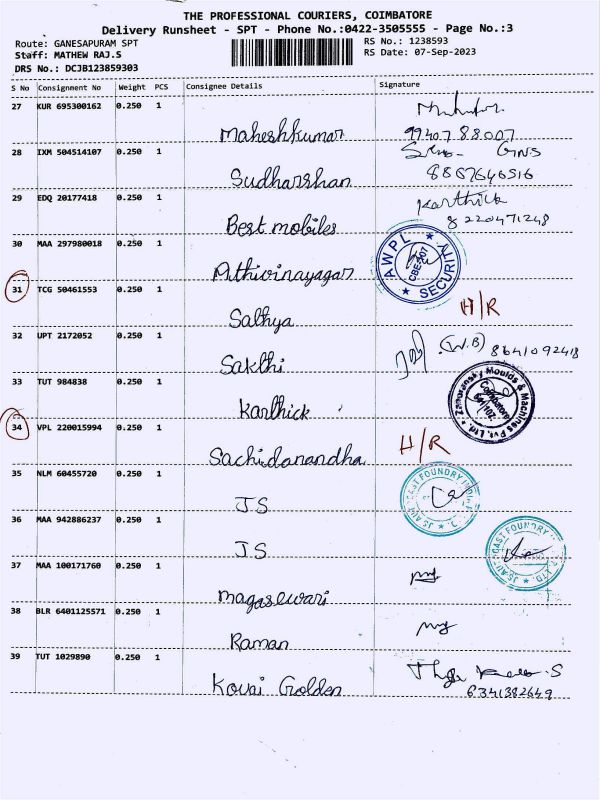 THE PROFESSIONAL COURIERS, COIMBATORE
Delivery Runsheet - SPT - Phone No.:0422-3505555 - Page No.:3
Route: GANESAPURAM SPT RS No.: 1238593
Staff: MATHEW RAJ.S RS Date: 07-Sep-2023
DRS No.: DCJB123859303
S No Consignment No Weight PCS Consignee Details Signature
27 KUR 695300162 0.250 1
Maheshkumar 99407 88007
28 IXM 504514107 0.250 1
Sudharshan
29 EDQ 20177418 0.250 1 Karthick
Best mobiles 8220471248
30 MAA 297980018 0.250 1 AWPL SECURITY
Athivinayagar
31 TCG 50461553 0.250 1 H/R
Sathya
32 UPT 2172052 0.250 1 (W.B) 8641092418
Sakthi
33 TUT 984838 0.250 1
Karthick
34 VPL 220015994 0.250 1 H/R
Sachidanandha
35 NLM 60455720 0.250 1
JS
36 MAA 942886237 0.250 1
JS
37 MAA 100171760 0.250 1
Magaswari
38 BLR 6401125571 0.250 1
Raman
39 TUT 1029890 0.250 1
Kovai Golden 6341382649